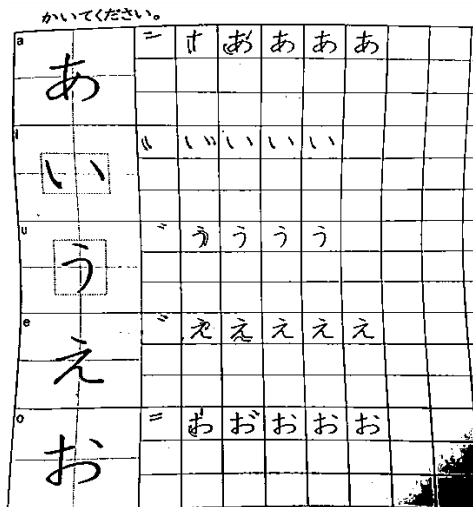 かいてください。
a
あ あ あ あ あ
i
い い い い い い
u
う う う う う
e
え え え え え え
o
お お お お お お